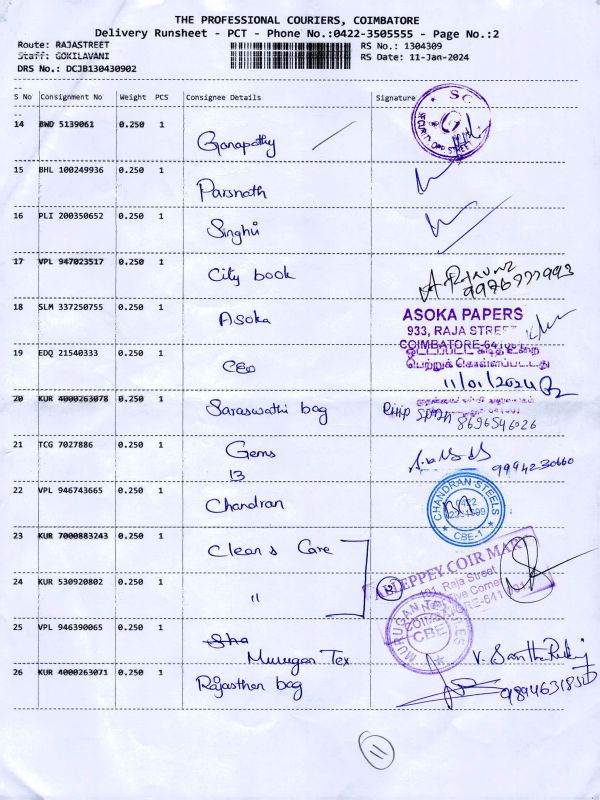 THE PROFESSIONAL COURIERS, COIMBATORE
Delivery Runsheet - PCT - Phone No.:0422-3505555 - Page No.:2
Route: RAJASTREET
RS No.: 1304309
Staff: GOKILAVANI
RS Date: 11-Jan-2024
DRS No.: DCJB130430902
S No Consignment No Weight PCS Consignee Details Signature
14 BWD 5139061 0.250 1 Ganapathy
15 BHL 100249936 0.250 1 Parsnath
16 PLI 200350652 0.250 1 Singhvi
17 VPL 947023517 0.250 1 City book
9976777993
18 SLM 337250755 0.250 1 Asoka
ASOKA PAPERS
933, RAJA STREET
COIMBATORE-641001
19 EDQ 21540333 0.250 1 CEO
ஒட்டப்பட்ட கடித உறை
பெற்றுக் கொள்ளப்பட்டது
11/01/2024
20 KUR 4000263078 0.250 1 Saraswathi bag
8696546026
21 TCG 7027886 0.250 1 Gems
13
9994230660
22 VPL 946743665 0.250 1 Chandran
CHANDRAN STEELS
CBE-1
23 KUR 7000883243 0.250 1 Clean & Care
24 KUR 530920802 0.250 1 "
ALLEPPEY COIR MART
Raja Street
Five Corner
25 VPL 946390065 0.250 1 Sha
Murugan Tex
MURUGAN TEXTILES
CBE
26 KUR 4000263071 0.250 1 Rajasthan bag
9894631850
11